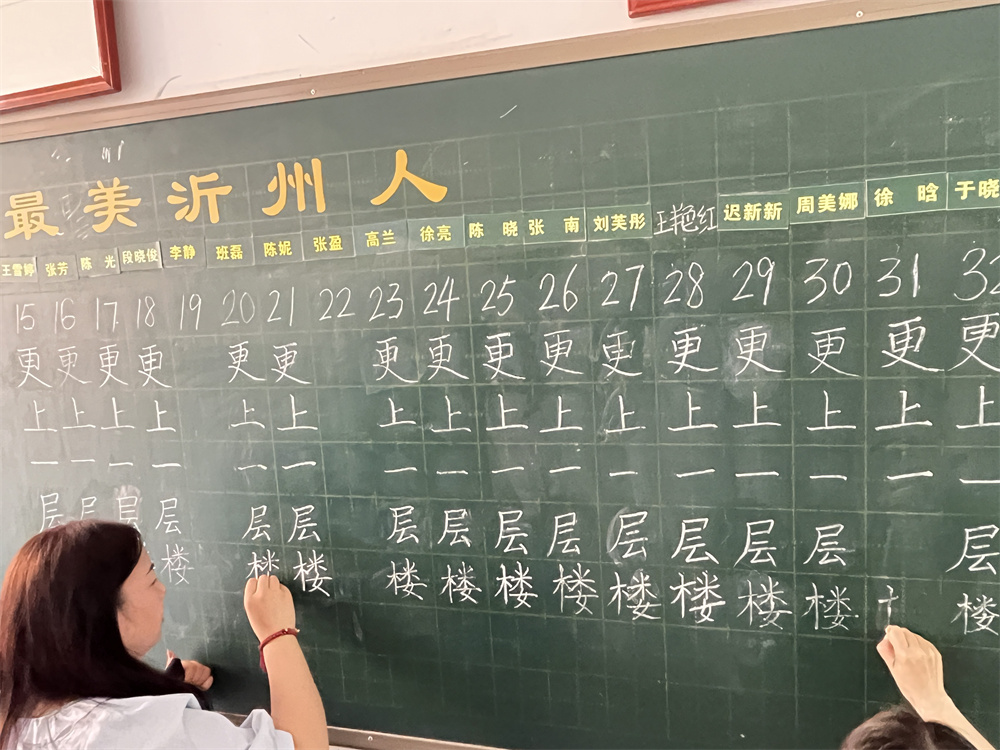 最美沂州人
王雪婷 张芳 陈 光 段晓俊 李静 班磊 陈妮 张盈 高兰 徐亮 陈 晓 张 南 刘芙彤 王艳红 迟新新 周美娜 徐 晗 于晓
15 16 17 18 19 20 21 22 23 24 25 26 27 28 29 30 31 32
更 更 更 更 更 更 更 更 更 更 更 更 更 更 更 更
上 上 上 上 上 上 上 上 上 上 上 上 上 上 上 上
一 一 一 一 一 一 一 一 一 一 一 一 一 一 一 一
层 层 层 层 层 层 层 层 层 层 层 层 层 层 层
楼 楼 楼 楼 楼 楼 楼 楼 楼 楼 楼 楼